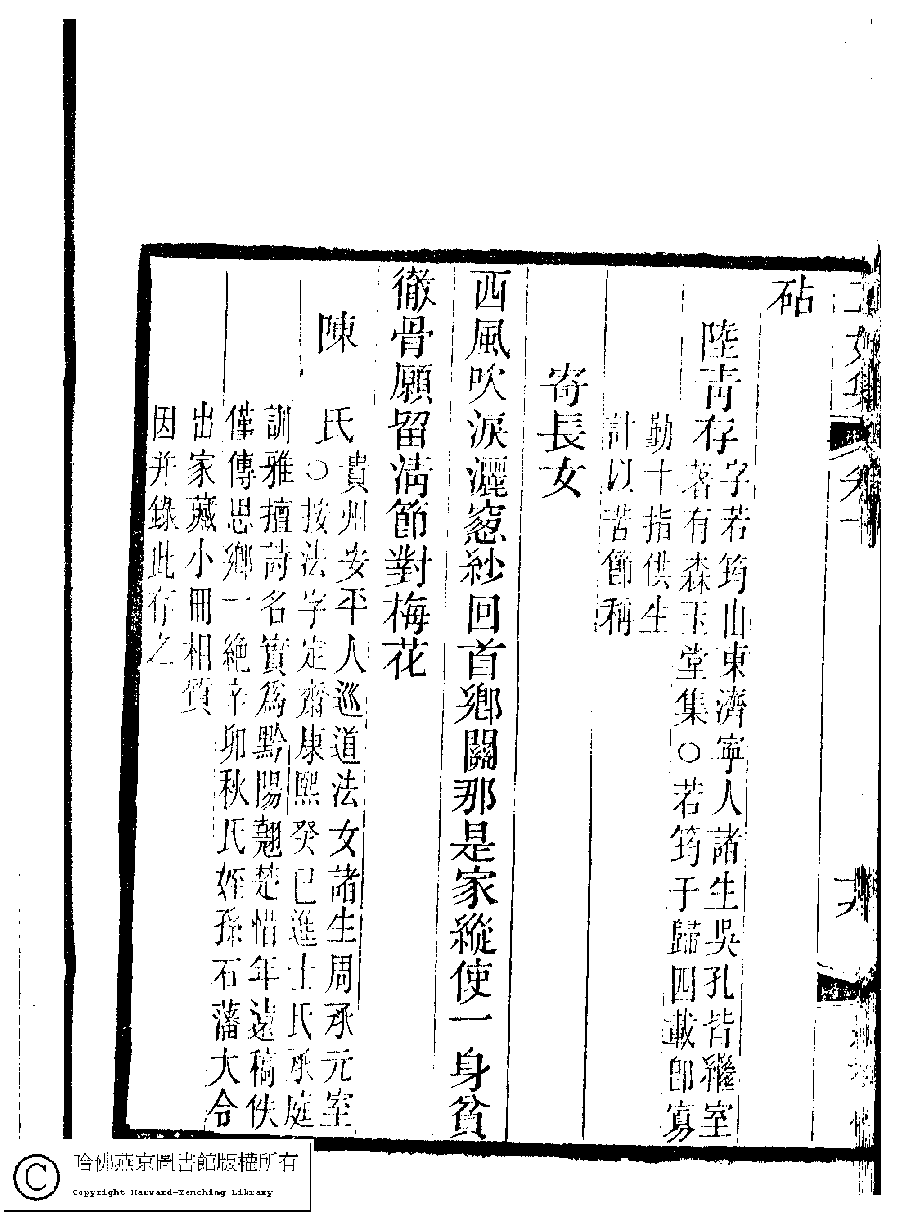 砧
陸靑存字若筠山東濟寧人諸生吳孔皆繼室
著有森玉堂集○若筠子歸四載即寡
勤十指供生
計以苦節稱
寄長女
西風吹淚灑窓紗回首鄉關那是家縱使一身貧
徹骨願留淸節對梅花
陳氏貴州安平人巡道法女諸生周承元室
○按法字定齋康熙癸巳進士氏承庭
訓雅擅詩名實爲黔陽翹楚惜年遠稿佚
僅傳思鄉一絶辛卯秋氏姪孫石藩大令
出家藏小冊相質
因并錄此存之
哈佛燕京圖書館版權所有
Copyright Harvard-Yenching Library